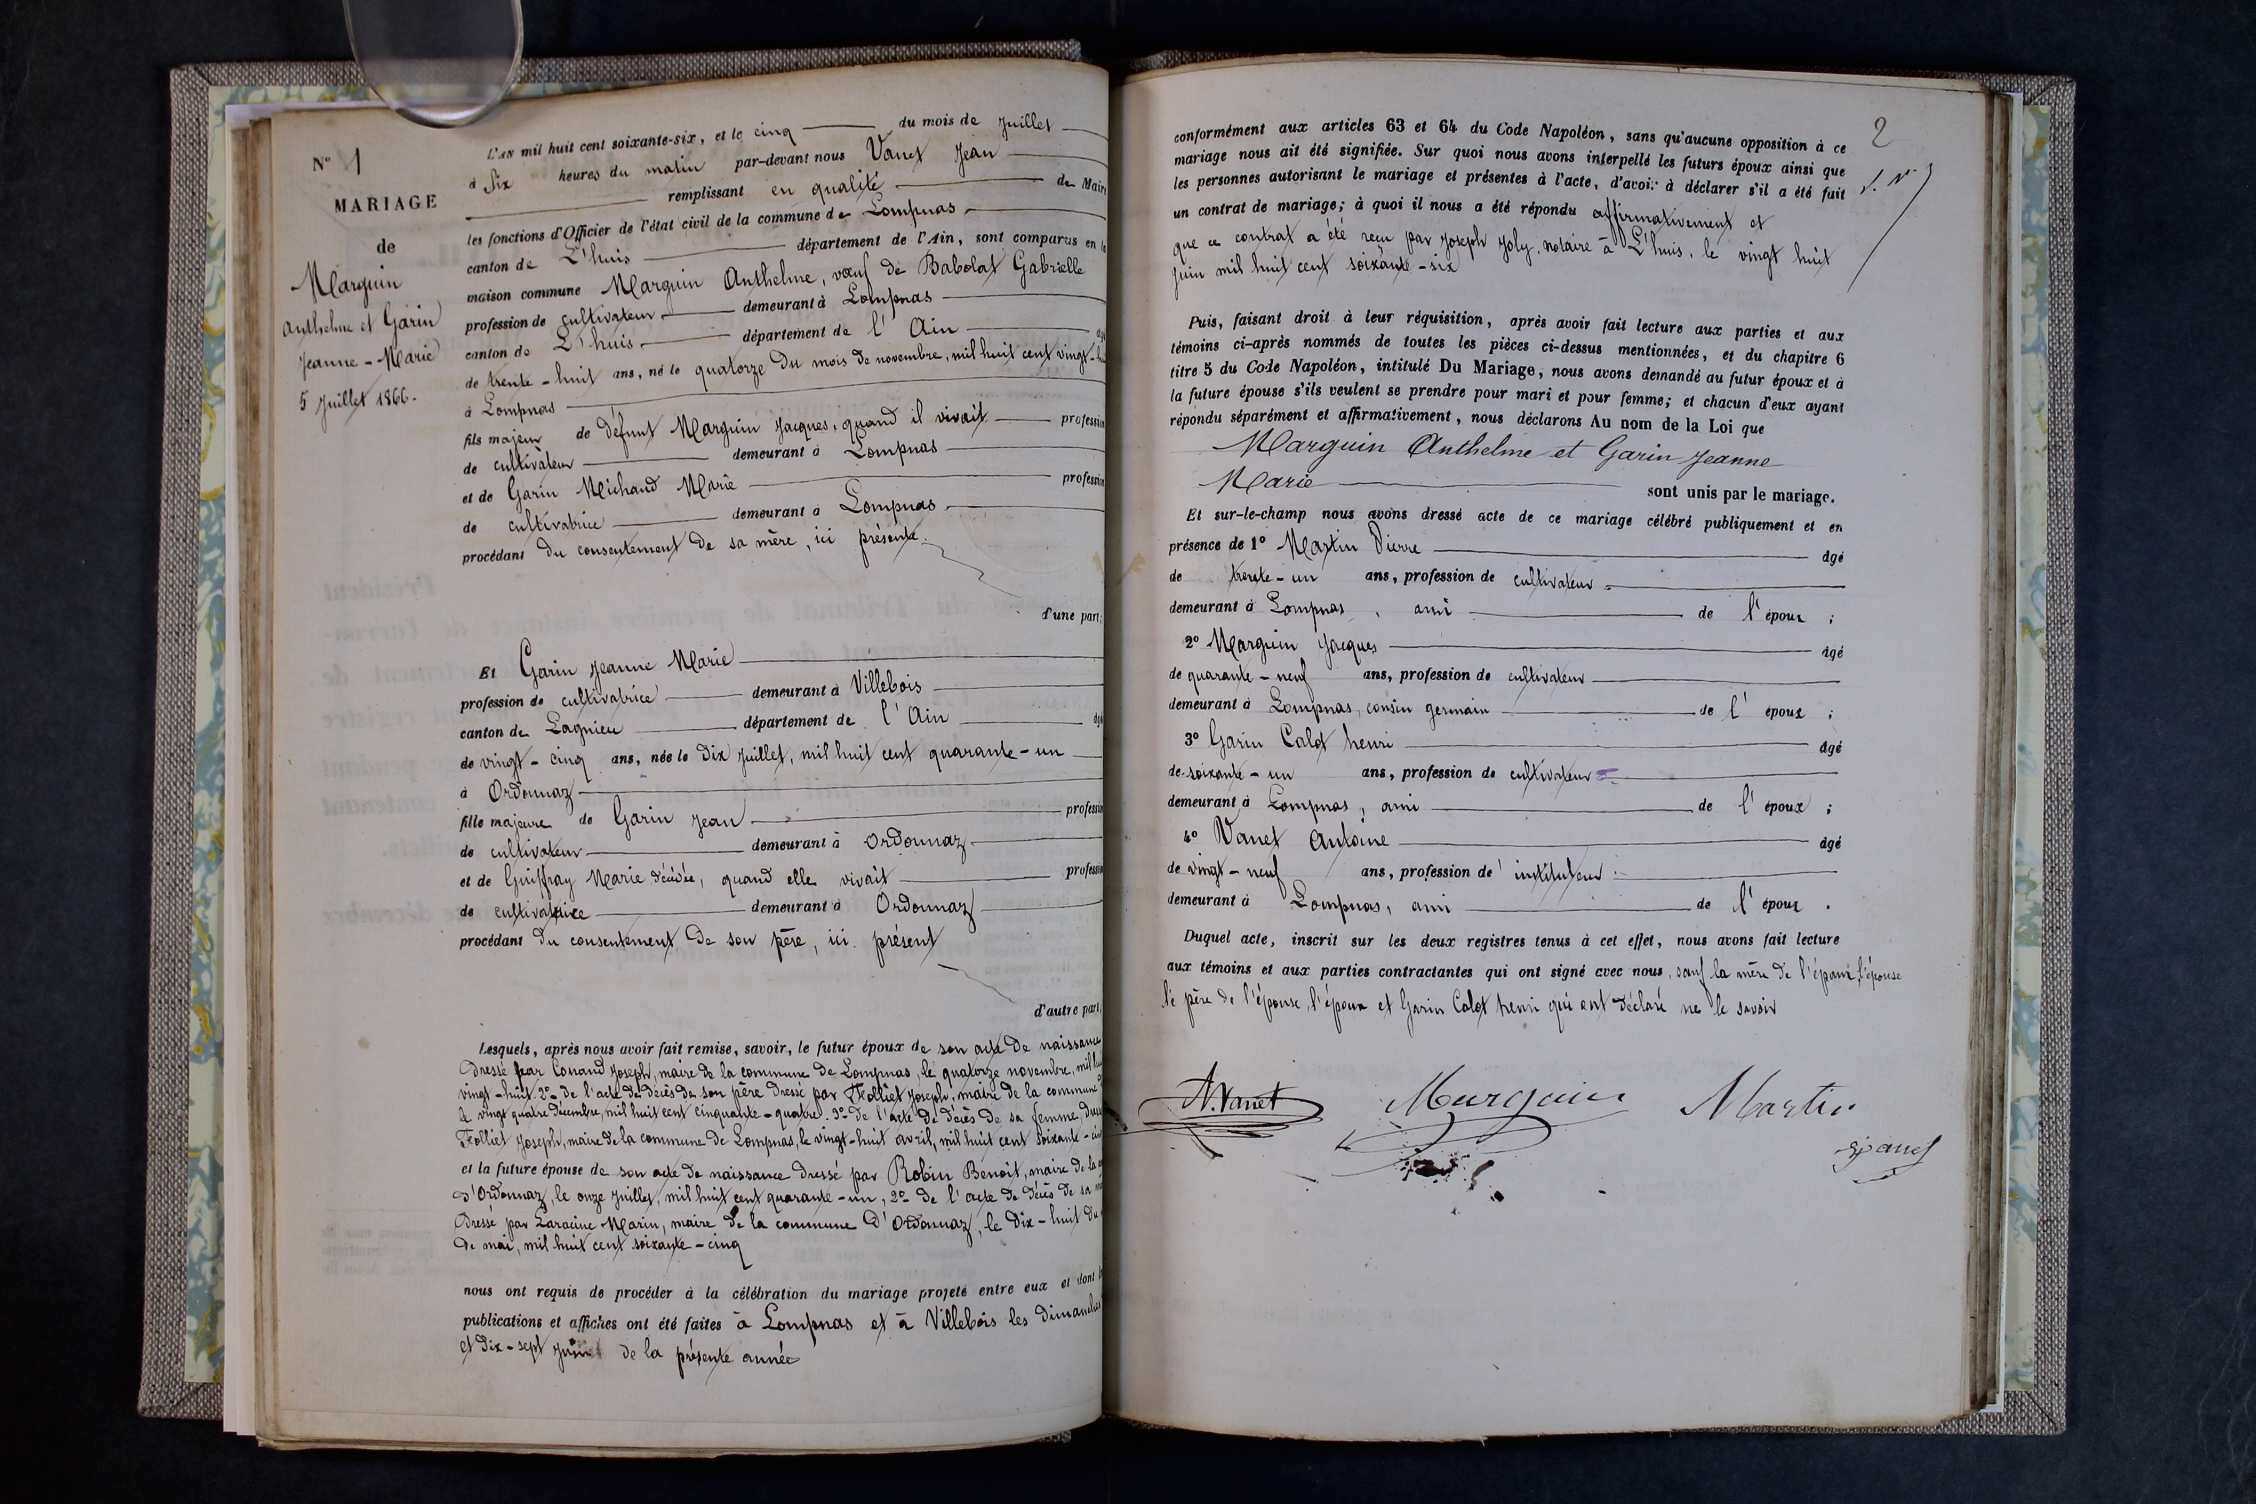 N° 1
MARIAGE
de
Marguin
Anthelme et Garin
Jeanne-Marie
5 Juillet 1866.
L'AN mil huit cent soixante-six, et le cinq du mois de Juillet
à Six heures du matin par-devant nous Vanet Jean
remplissant en qualité de Maire
les fonctions d'Officier de l'état civil de la commune de Lompnas
canton de L'huis département de l'Ain, sont comparus en la
maison commune Marguin Anthelme, veuf de Babolat Gabrielle
profession de cultivateur demeurant à Lompnas
canton de L'huis département de l'Ain âgé
de trente-huit ans, né le quatorze du mois de novembre, mil huit cent vingt-huit
à Lompnas
fils majeur de défunt Marguin Jacques, quand il vivait profession
de cultivateur demeurant à Lompnas
et de Garin Michaud Marie profession
de cultivatrice demeurant à Lompnas
procédant du consentement de sa mère, ici présente.
d'une part;
Et Garin Jeanne Marie
profession de cultivatrice demeurant à Villebois
canton de Lagnieu département de l'Ain âgé
de vingt-cinq ans, née le dix Juillet, mil huit cent quarante-un
à Ordonnaz
fille majeure de Garin Jean profession
de cultivateur demeurant à Ordonnaz
et de Guiffray Marie décédée, quand elle vivait profession
de cultivatrice demeurant à Ordonnaz
procédant du consentement de son père, ici présent
d'autre part,
Lesquels, après nous avoir fait remise, savoir, le futur époux de son acte de naissance
dressé par Conand Joseph, maire de la commune de Lompnas, le quatorze novembre, mil huit
vingt-huit. 2° de l'acte de décès de son père dressé par Folliet Joseph, maire de la commune
le vingt quatre décembre, mil huit cent cinquante-quatre. 3° de l'acte de décès de sa femme, dressé
Folliet Joseph, maire de la commune de Lompnas, le vingt-huit avril, mil huit cent soixante-cinq
et la future épouse de son acte de naissance dressé par Robin Benoit, maire de la
d'Ordonnaz, le onze Juillet, mil huit cent quarante-un, 2° de l'acte de décès de sa mère
dressé par Laracine Marin, maire de la commune d'Ordonnaz, le dix-huit du
de mai, mil huit cent soixante-cinq
nous ont requis de procéder à la célébration du mariage projeté entre eux et dont les
publications et affiches ont été faites à Lompnas et à Villebois les dimanches
et dix-sept Juin de la présente année
2
conformément aux articles 63 et 64 du Code Napoléon, sans qu'aucune opposition à ce
mariage nous ait été signifiée. Sur quoi nous avons interpellé les futurs époux ainsi que
les personnes autorisant le mariage et présentes à l'acte, d'avoir à déclarer s'il a été fait
un contrat de mariage; à quoi il nous a été répondu affirmativement et
que ce contrat a été reçu par Joseph Joly, notaire à L'huis, le vingt huit
juin mil huit cent soixante-six
Puis, faisant droit à leur réquisition, après avoir fait lecture aux parties et aux
témoins ci-après nommés de toutes les pièces ci-dessus mentionnées, et du chapitre 6
titre 5 du Code Napoléon, intitulé Du Mariage, nous avons demandé au futur époux et à
la future épouse s'ils veulent se prendre pour mari et pour femme; et chacun d'eux ayant
répondu séparément et affirmativement, nous déclarons Au nom de la Loi que
Marguin Anthelme et Garin Jeanne
Marie sont unis par le mariage.
Et sur-le-champ nous avons dressé acte de ce mariage célébré publiquement et en
présence de 1° Martin Pierre âgé
de trente-un ans, profession de cultivateur
demeurant à Lompnas, ami de l'époux ;
2° Marguin Jacques âgé
de quarante-neuf ans, profession de cultivateur
demeurant à Lompnas, cousin germain de l'époux ;
3° Garin Calot henri âgé
de soixante-un ans, profession de cultivateur
demeurant à Lompnas, ami de l'époux ;
4° Vanet Antoine âgé
de vingt-neuf ans, profession de instituteur
demeurant à Lompnas, ami de l'époux .
Duquel acte, inscrit sur les deux registres tenus à cet effet, nous avons fait lecture
aux témoins et aux parties contractantes qui ont signé avec nous, sauf la mère de l'époux, l'épouse
le père de l'épouse, l'époux et Garin Calot henri qui ont déclaré ne le savoir
A. Vanet Marguin Martin